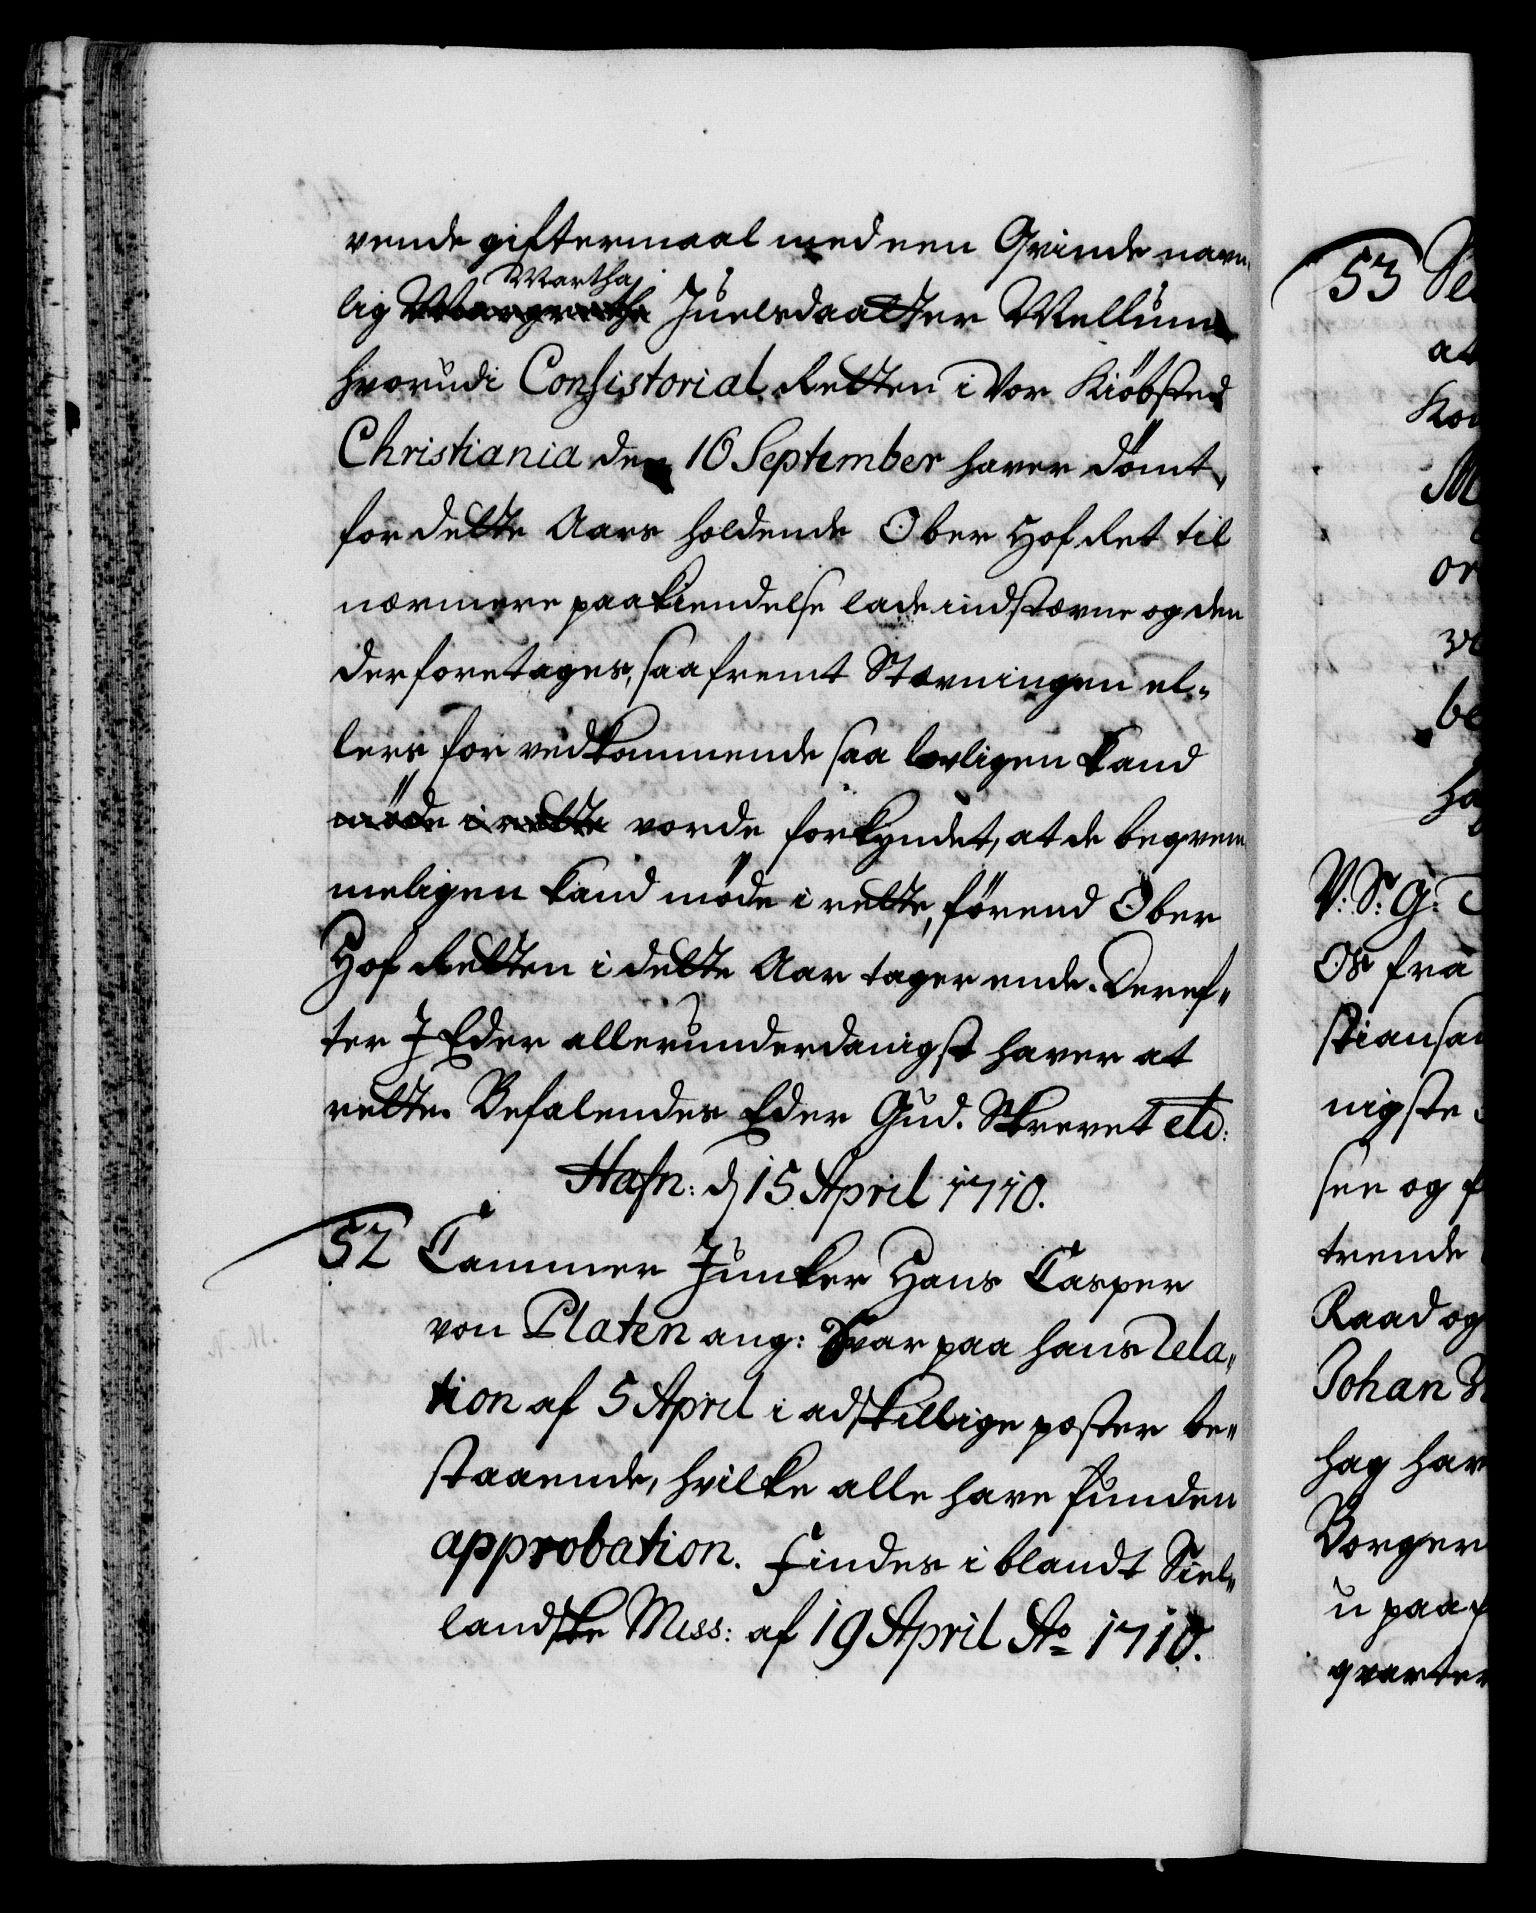 vende giftermaal med een Qvinde navn-
lig Margrethe Martha Juelsdaatter Mellum
hvorudi Consistorial Retten i Vor Kiöbsted
Christiania den 16 September haver dömt,
for dette Aars holdende Ober Hof Ret til
nærmere paakiendelse lade indstævne og den
der foretages, saafremt Stævningen el-
lers for vedkommende saa lovligen kand
möde i rette vorde forkyndet, at de beqvem-
meligen kand möde i rette, förend Ober
Hof Retten i dette Aar tager ende. Deref-
ter I Eder allerunderdanigst haver at
rette. Befalendes Eder Gud. Skrevet etc:
Hafn: d 15 April 1710.
52 Cammer Junker Hans Casper
von Platen ang: Svar paa hans Rela-
tion af 5 April i adskillige poster be-
staaende, hvilke alle have funden
approbation. Findes i blandt Siel-
landske Miss: af 19 April Ao 1710.
53
at
or
be
V: S: G:
Os fra
nigste
see og
trende
Raad og
Johan
hag har
Borger
u paa